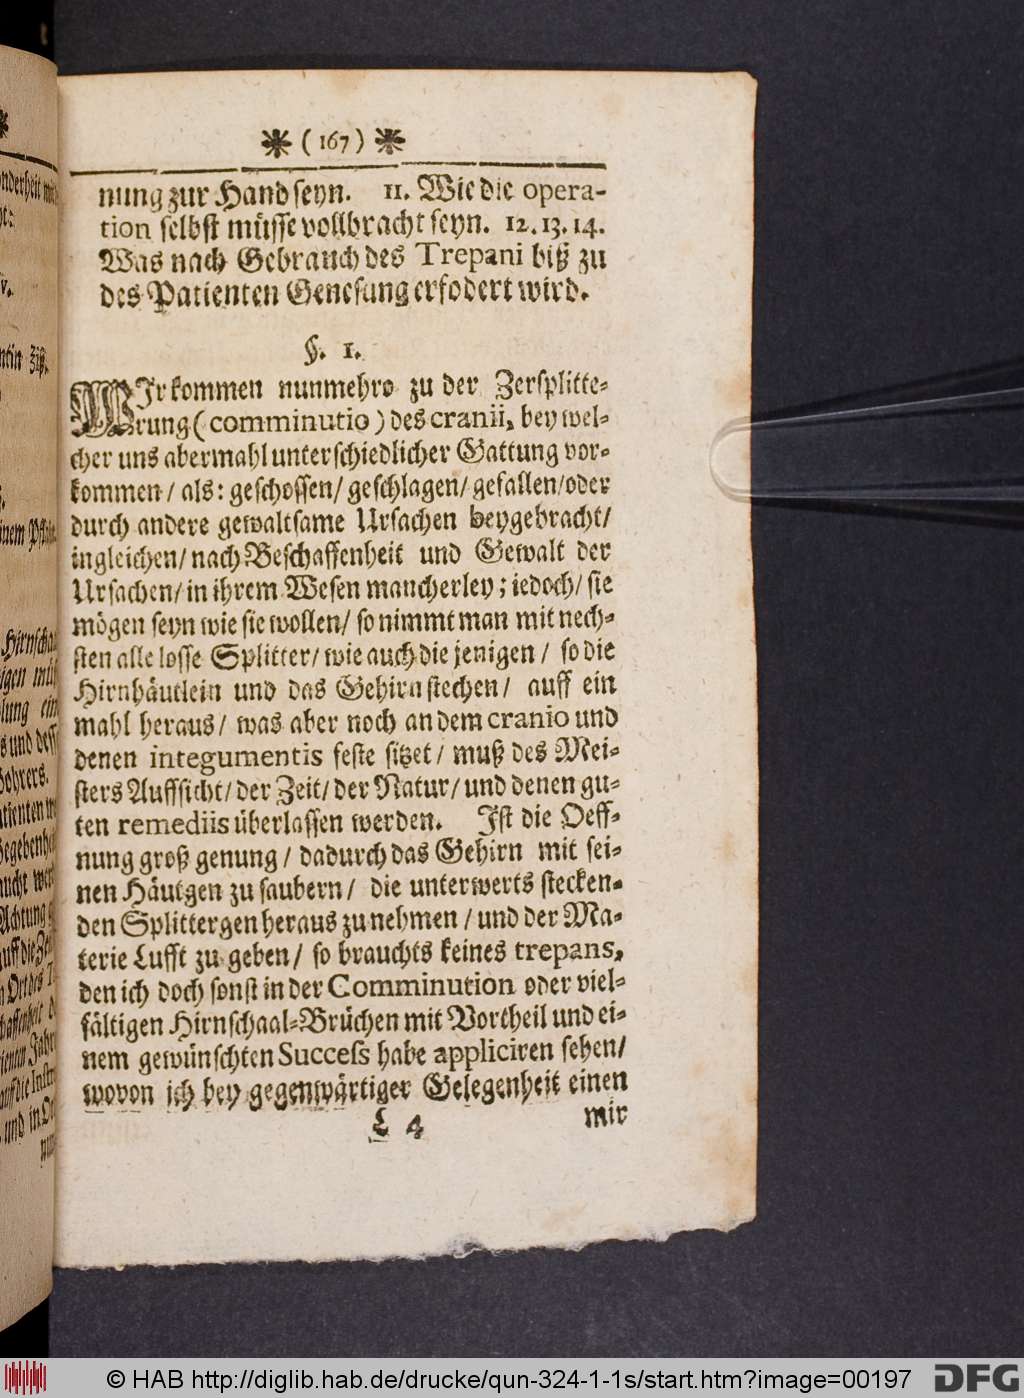 ❋ ( 167 ) ❋
nung zur Hand seyn. 11. Wie die opera-
tion selbst müsse vollbracht seyn. 12. 13. 14.
Was nach Gebrauch des Trepani biß zu
des Patienten Genesung erfodert wird.
§. 1.
WIr kommen nunmehro zu der Zersplitte-
rung ( comminutio ) des cranii, bey wel-
cher uns abermahl unterschiedlicher Gattung vor-
kommen / als: geschossen / geschlagen / gefallen / oder
durch andere gewaltsame Ursachen beygebracht /
ingleichen / nach Beschaffenheit und Gewalt der
Ursachen / in ihrem Wesen mancherley; iedoch / sie
mögen seyn wie sie wollen / so nimmt man mit nech-
sten alle losse Splitter / wie auch die jenigen / so die
Hirnhäutlein und das Gehirn stechen / auff ein
mahl heraus / was aber noch an dem cranio und
denen integumentis feste sitzet / muß des Mei-
sters Auffsicht / der Zeit / der Natur / und denen gu-
ten remediis überlassen werden. Ist die Oeff-
nung groß genung / dadurch das Gehirn mit sei-
nen Häutgen zu saubern / die unterwerts stecken-
den Splittergen heraus zu nehmen / und der Ma-
terie Lufft zu geben / so brauchts keines trepans,
den ich doch sonst in der Comminution oder viel-
fältigen Hirnschaal-Brüchen mit Vortheil und ei-
nem gewünschten Success habe appliciren sehen /
wovon ich bey gegenwärtiger Gelegenheit einen
L 4 mir
© HAB http://diglib.hab.de/drucke/qun-324-1-1s/start.htm?image=00197
DFG